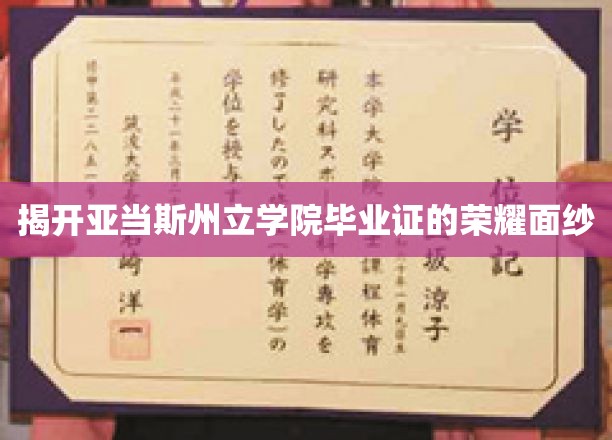 揭开亚当斯州立学院毕业证的荣耀面纱
学位記
坂涼子
本学大学院 士課程体育
研究科スポー 科学専攻を
修了したので修 (体育学)の
学位を授与す
平成二十一年三月二十
筑波大学長 岩崎洋一
修甲第二二八五一号